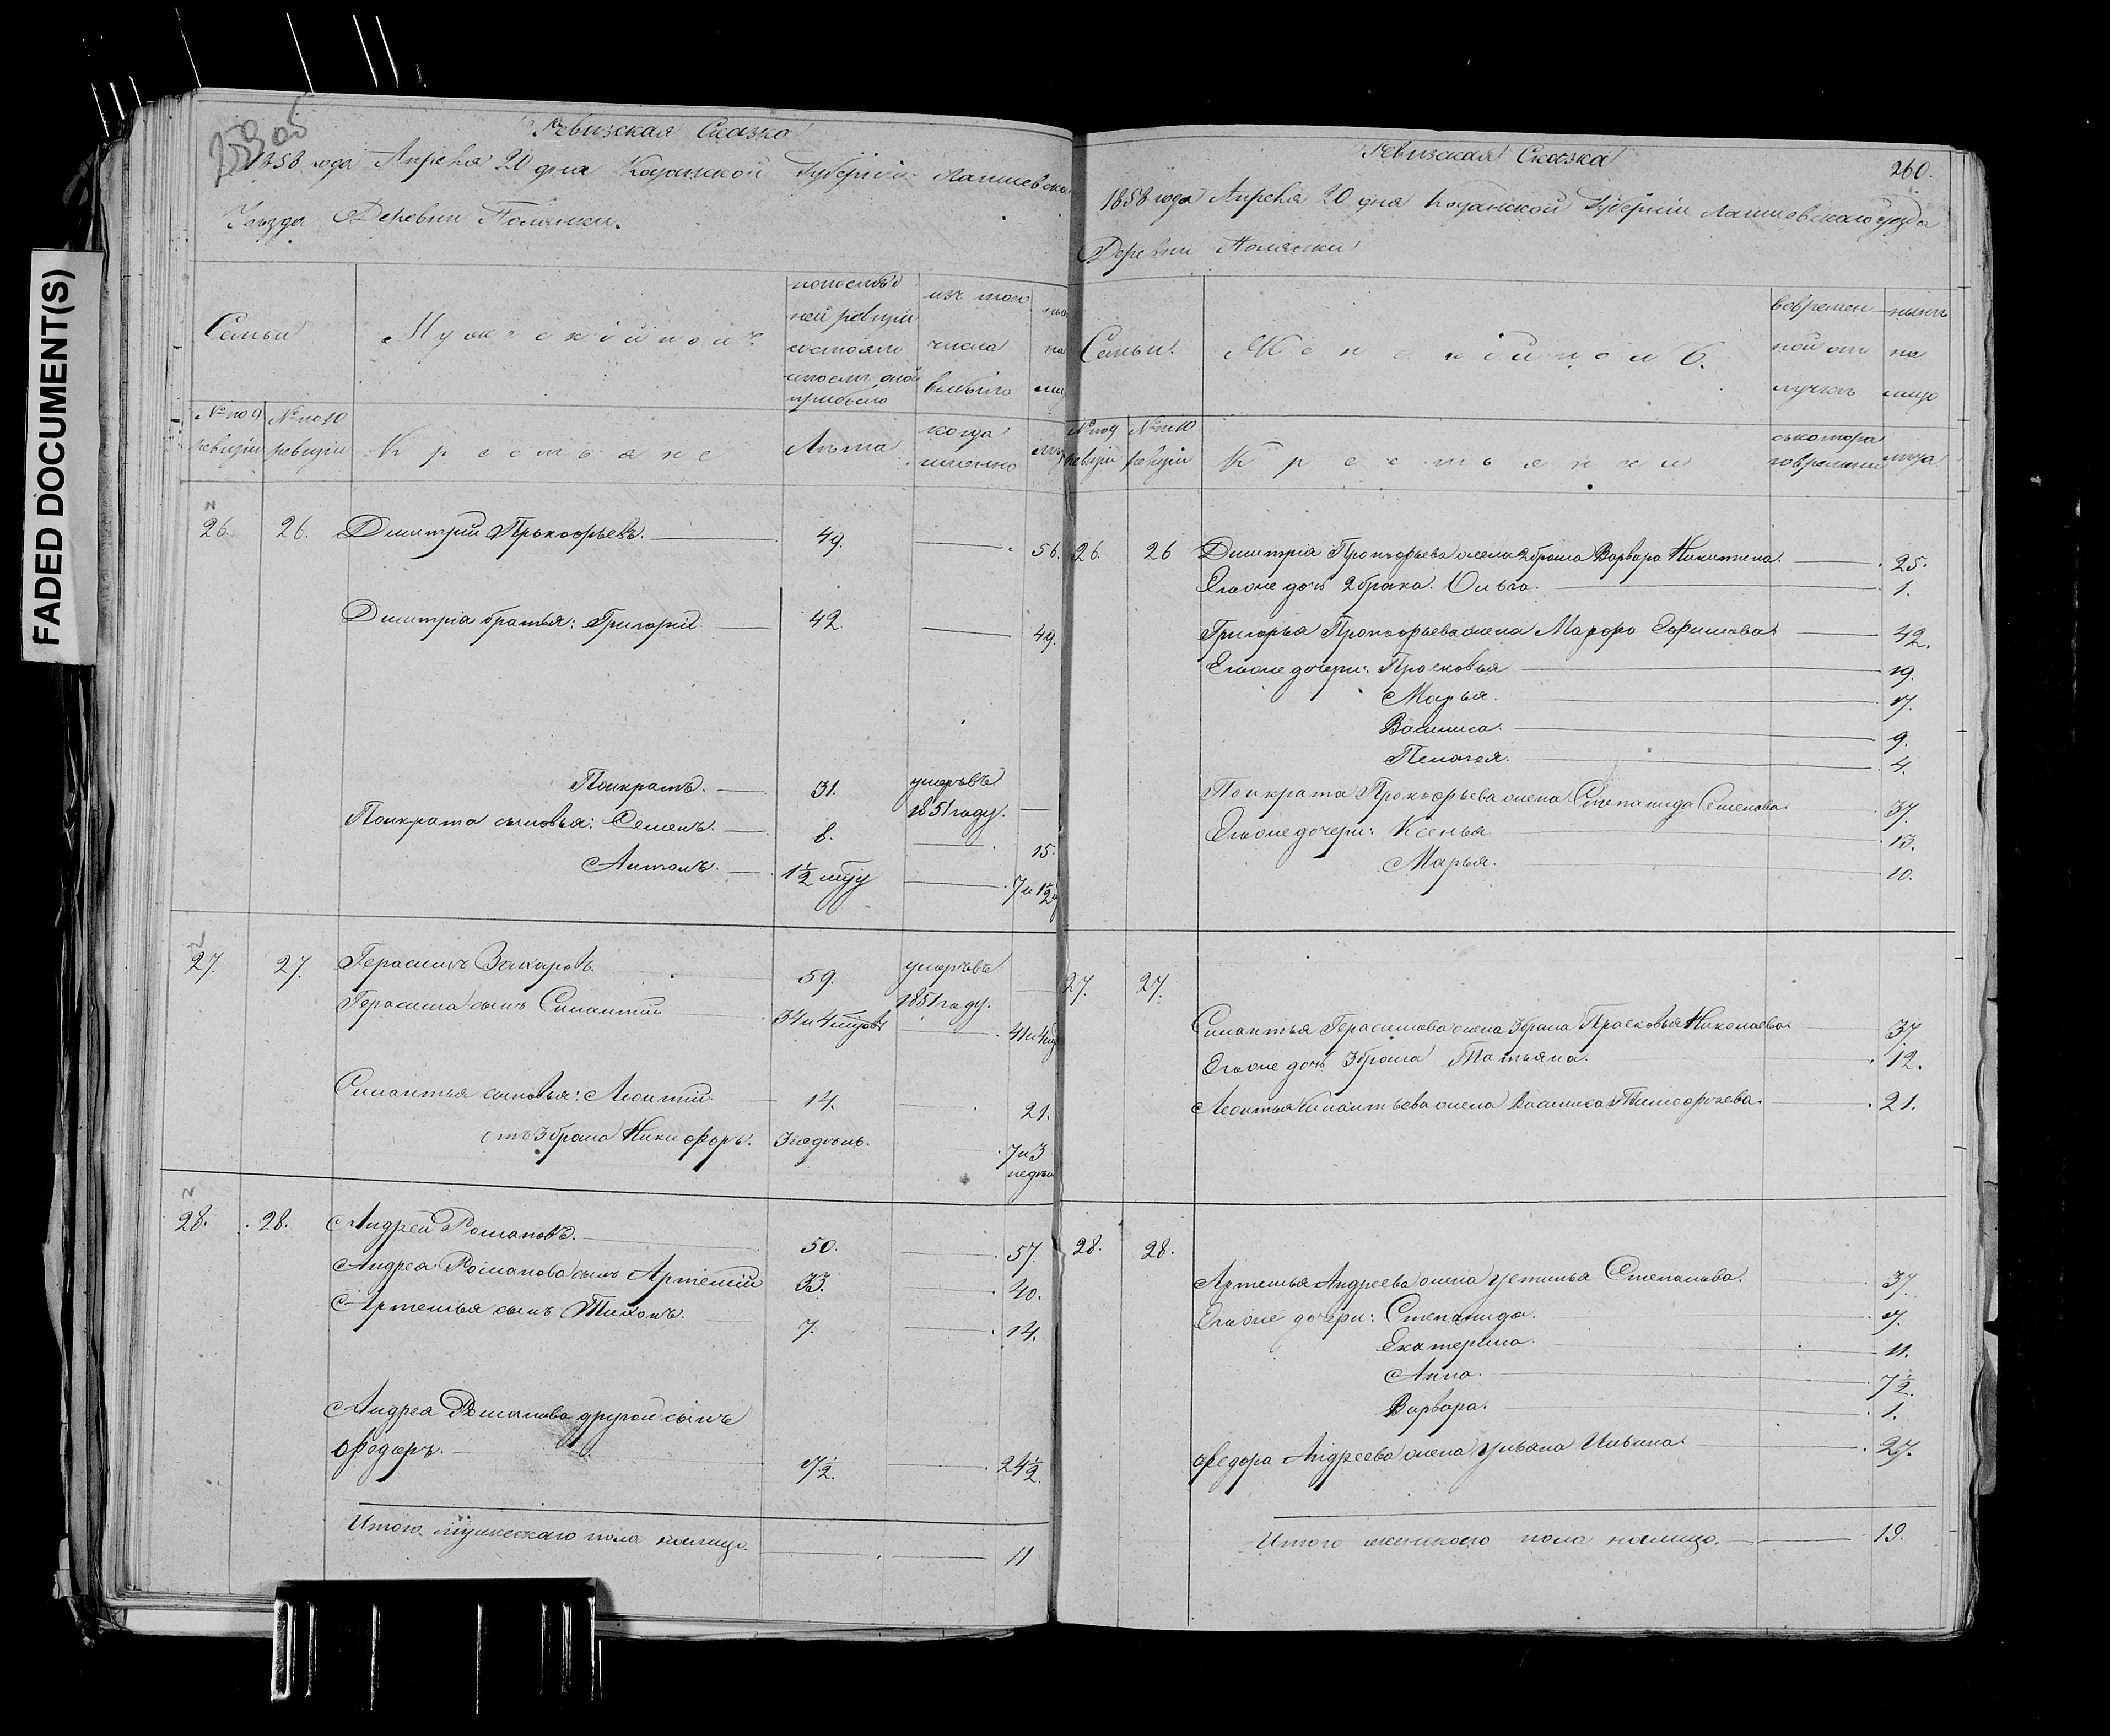 FADED DOCUMENT(S)
Ревизская Сказка
1858 года Апреля 20 дня Казанской Губернiи Лаишевска
Уезда Деревни Полянки.
Семьи
Мужескiй полъ
по последней ревизiи состояло и после оной прибыло
изъ того числа выбыло
№ по 9 ревизiи
№ по 10 ревизiи
Крестьяне
Лѣта
когда именно
26. 26. Димитрий Прокофьевъ. 49. 56.
Димитрiя братья: Григорiй. 42. 49.
Панкратъ. 31. умеръ въ 1851 году.
Панкрата сыновья: Семенъ. 8. 15.
Антонъ. 1½ году 7 и 1½
27. 27. Герасимъ Захаровъ. 59. умеръ въ 1851 году.
Герасима сынъ Силантiй 34 и 4 41 и 4
Силантья сыновья: Леонтiй. 14. 21.
отъ 3 брака Никифоръ. 3 недѣль. 7 и 3 недѣли
28. 28. Андрей Романовъ. 50. 57.
Андрея Романова сынъ Артемiй 33. 40.
Артемья сынъ Тихонъ. 7. 14.
Андрея Романова другой сынъ
Федоръ. 17½. 24½.
Итого мужескаго пола налицо. 11
Ревизская Сказка
260.
1858 года Апреля 20 дня Казанской Губернiи Лаишевскаго уезда
Деревни Полянки
Семьи.
Женскiй полъ.
во временной отлучкѣ
нынѣ на лицо
№ по 9 ревизiи
№ по 10 ревизiи
Крестьянки
съ котораго времени
лѣта
26. 26 Димитрiя Прокофьева жена 2 брака Варвара Никитина. 25.
Ево же дочь 2 брака. Ольга. 1.
Григорья Прокофьева жена Марфа Ефимова 42.
Ево же дочери: Прасковья 19.
Марья. 17.
Василиса. 9.
Пелагея. 4.
Панкрата Прокофьева жена Степанида Семенова 37.
Ево же дочери: Ксенья 13.
Марья. 10.
27. 27.
Силантья Герасимова жена 3 брака Прасковья Николаева. 37.
Ево же дочь 3 брака Татьяна. 12.
Леонтья Силантьева жена Василиса Тимофеева. 21.
28. 28.
Артемья Андреева жена Устинья Степанова. 37.
Ево же дочери: Степанида. 17.
Екатерина. 11.
Анна. 7½.
Варвара. 1.
Федора Андреева жена Ульяна Ильина. 27.
Итого женскаго пола налицо. 19.